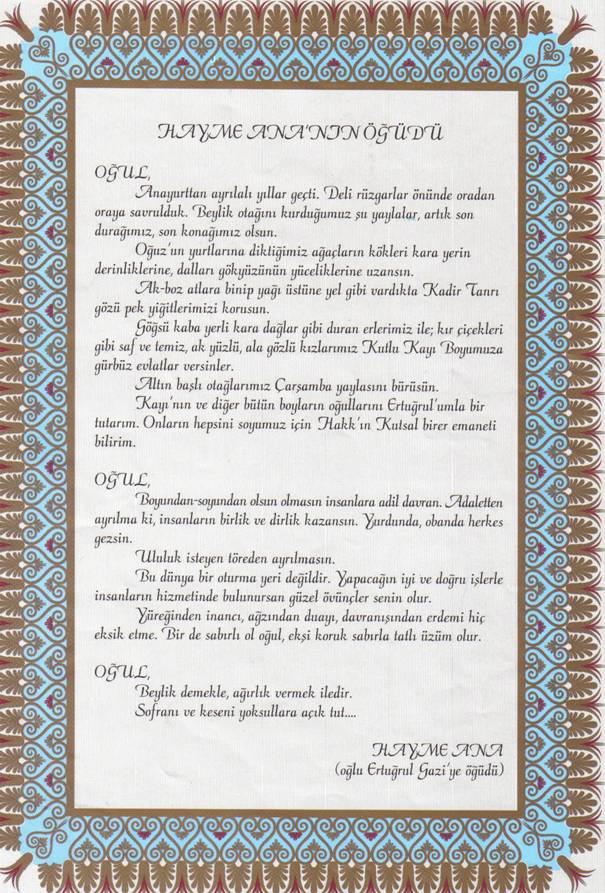 HAYME ANA'NIN ÖĞÜDÜ
OĞUL,
Anayurttan ayrılalı yıllar geçti. Deli rüzgarlar önünde oradan
oraya savrulduk. Beylik otağını kurduğumuz şu yaylalar, artık son
durağımız, son konağımız olsun.
Oğuz'un yurtlarına diktiğimiz ağaçların kökleri kara yerin
derinliklerine, dalları gökyüzünün yüceliklerine uzansın.
Ak-boz atlara binip yağı üstüne yel gibi vardıkta Kadir Tanrı
gözü pek yiğitlerimizi korusun.
Göğsü kaba yerli kara dağlar gibi duran erlerimiz ile; kır çiçekleri
gibi saf ve temiz, ak yüzlü, ala gözlü kızlarımız Kutlu Kayı Boyumuza
gürbüz evlatlar versinler.
Altın başlı otağlarımız Çarşamba yaylasını bürüsün.
Kayı'nın ve diğer bütün boyların oğullarını Ertuğrul'umla bir
tutarım. Onların hepsini soyumuz için Hakk'ın Kutsal birer emaneti
bilirim.
OĞUL,
Boyundan-soyundan olsun olmasın insanlara adil davran. Adaletten
ayrılma ki, insanların birlik ve dirlik kazansın. Yurdunda, obanda herkes
gezsin.
Ululuk isteyen töreden ayrılmasın.
Bu dünya bir oturma yeri değildir. Yapacağın iyi ve doğru işlerle
insanların hizmetinde bulunursan güzel övünçler senin olur.
Yüreğinden inancı, ağzından duayı, davranışından erdemi hiç
eksik etme. Bir de sabırlı ol oğul, ekşi koruk sabırla tatlı üzüm olur.
OĞUL,
Beylik demekle, ağırlık vermek iledir.
Sofranı ve keseni yoksullara açık tut....
HAYME ANA
(oğlu Ertuğrul Gazi'ye öğüdü)